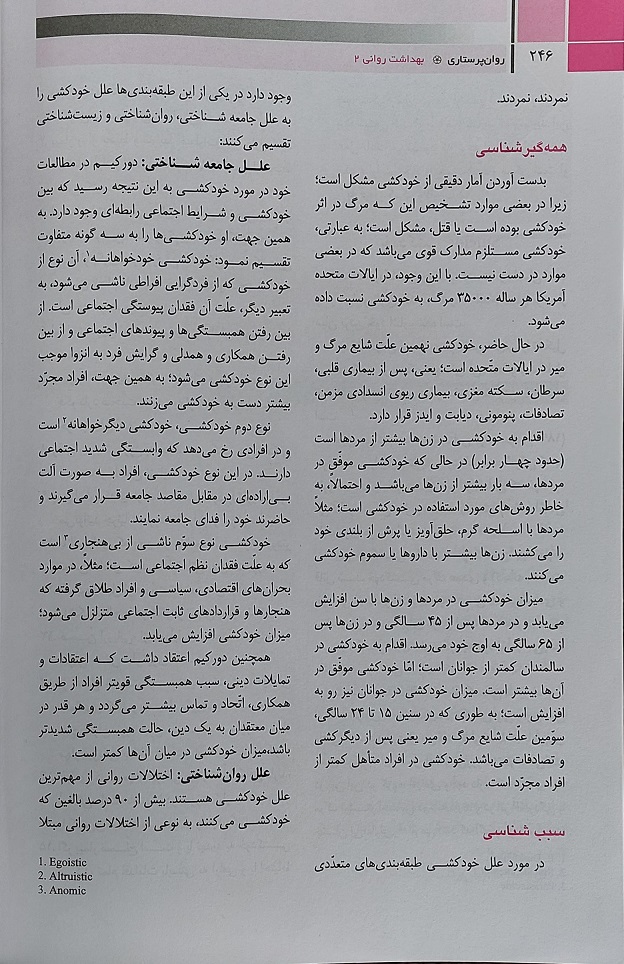 ۲۴۶ روان‌پرستاری بهداشت روانی ۲
نمردند، نمردند.
همه‌گیرشناسی
بدست آوردن آمار دقیقی از خودکشی مشکل است؛
زیرا در بعضی موارد تشخیص این که مرگ در اثر
خودکشی بوده است یا قتل، مشکل است؛ به عبارتی،
خودکشی مستلزم مدارک قوی می‌باشد که در بعضی
موارد در دست نیست. با این وجود، در ایالات متحده
آمریکا هر ساله ۳۵۰۰۰ مرگ، به خودکشی نسبت داده
می‌شود.
در حال حاضر، خودکشی نهمین علّت شایع مرگ و
میر در ایالات متّحده است؛ یعنی، پس از بیماری قلبی،
سرطان، سکته مغزی، بیماری ریوی انسدادی مزمن،
تصادفات، پنومونی، دیابت و ایدز قرار دارد.
اقدام به خودکشی در زن‌ها بیشتر از مردها است
(حدود چهار برابر) در حالی که خودکشی موفّق در
مردها، سه بار بیشتر از زن‌ها می‌باشد و احتمالاً، به
خاطر روش‌های مورد استفاده در خودکشی است؛ مثلاً
مردها با اسلحه گرم، حلق‌آویز یا پرش از بلندی خود
را می‌کشند. زن‌ها بیشتر با داروها یا سموم خودکشی
می‌کنند.
میزان خودکشی در مردها و زن‌ها با سن افزایش
می‌یابد و در مردها پس از ۴۵ سالگی و در زن‌ها پس
از ۶۵ سالگی به اوج خود می‌رسد. اقدام به خودکشی در
سالمندان کمتر از جوانان است؛ امّا خودکشی موفّق در
آن‌ها بیشتر است. میزان خودکشی در جوانان نیز رو به
افزایش است؛ به طوری که در سنین ۱۵ تا ۲۴ سالگی،
سوّمین علّت شایع مرگ و میر یعنی پس از دیگرکشی
و تصادفات می‌باشد. خودکشی در افراد متأهل کمتر از
افراد مجرّد است.
سبب شناسی
در مورد علل خودکشی طبقه‌بندی‌های متعدّدی
وجود دارد در یکی از این طبقه‌بندی‌ها علل خودکشی را
به علل جامعه شناختی، روان‌شناختی و زیست‌شناختی
تقسیم می‌کنند:
علل جامعه شناختی: دورکیم در مطالعات
خود در مورد خودکشی به این نتیجه رسید که بین
خودکشی و شرایط اجتماعی رابطه‌ای وجود دارد. به
همین جهت، او خودکشی‌ها را به سه گونه متفاوت
تقسیم نمود: خودکشی خودخواهانه۱، آن نوع از
خودکشی که از فردگرایی افراطی ناشی می‌شود، به
تعبیر دیگر، علّت آن فقدان پیوستگی اجتماعی است. از
بین رفتن همبستگی‌ها و پیوندهای اجتماعی و از بین
رفتن همکاری و همدلی و گرایش فرد به انزوا موجب
این نوع خودکشی می‌شود؛ به همین جهت، افراد مجرّد
بیشتر دست به خودکشی می‌زنند.
نوع دوم خودکشی، خودکشی دیگرخواهانه۲ است
و در افرادی رخ می‌دهد که وابستگی شدید اجتماعی
دارند. در این نوع خودکشی، افراد به صورت آلت
بی‌اراده‌ای در مقابل مقاصد جامعه قرار می‌گیرند و
حاضرند خود را فدای جامعه نمایند.
خودکشی نوع سوّم ناشی از بی‌هنجاری۳ است
که به علّت فقدان نظم اجتماعی است؛ مثلاً، در موارد
بحران‌های اقتصادی، سیاسی و افراد طلاق گرفته که
هنجارها و قراردادهای ثابت اجتماعی متزلزل می‌شود؛
میزان خودکشی افزایش می‌یابد.
همچنین دورکیم اعتقاد داشت که اعتقادات و
تمایلات دینی، سبب همبستگی قویتر افراد از طریق
همکاری، اتّحاد و تماس بیشتر می‌گردد و هر قدر در
میان معتقدان به یک دین، حالت همبستگی شدیدتر
باشد،میزان خودکشی در میان آن‌ها کمتر است.
علل روان‌شناختی: اختلالات روانی از مهم‌ترین
علل خودکشی هستند. بیش از ۹۰ درصد بالغین که
خودکشی می‌کنند، به نوعی از اختلالات روانی مبتلا
1. Egoistic
2. Altruistic
3. Anomic